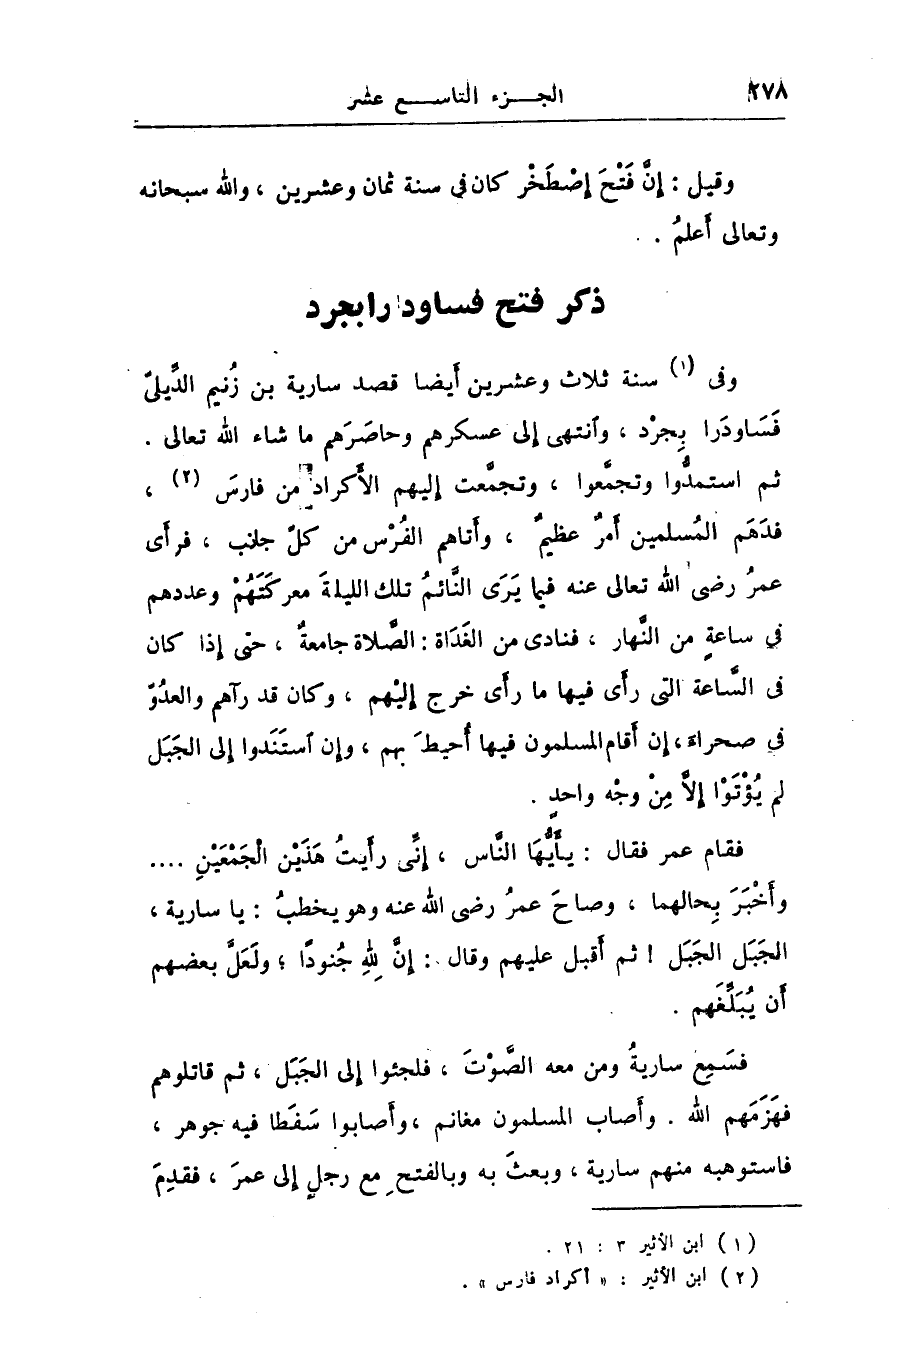 ٢٧٨ الجـزء التاسـع عشر
وقيل : إنَّ فَتْحَ إصْطَخْر كان فى سنة ثمان وعشرين ، والله سبحانه
وتعالى أَعلمُ .
ذكر فتح فساودا رابجرد
وفى (١) سنة ثلاث وعشرين أَيضا قصد سارية بن زُنيم الدِّيلىّ
فَسَاودَرا بِجرْد ، وٱنتهى إلى عسكرهم وحاصَرَهم ما شاء الله تعالى .
ثم استمدُّوا وتجمَّعوا ، وتجمَّعت إليهم الأَكراد من فارسَ (٢) ،
فدَهَم المُسلمين أَمرٌ عظيمٌ ، وأَتاهم الفُرْس من كلّ جانب ، فرأَى
عمرُ رضى الله تعالى عنه فيما يَرَى النَّائمُ تلك الليلةَ معركَتَهُمْ وعددهم
فى ساعةٍ من النَّهار ، فنادى من الغَدَاة : الصَّلاة جامعةٌ ، حتى إذا كان
فى السَّاعة التى رأَى فيها ما رأَى خرج إليْهم ، وكان قد رآهم والعدُوّ
فى صحراءَ ، إن أَقام المسلمون فيها أُحيطَ بهم ، وإن ٱستَنَدوا إلى الجَبَل
لم يُؤْتَوْا إلاَّ مِنْ وجْه واحدٍ .
فقام عمر فقال : يأَيُّهَا النَّاس ، إنِّى رأَيتُ هَذَيْن الْجَمْعَيْنِ ....
وأَخْبَرَ بِحالهما ، وصاحَ عمرُ رضى الله عنه وهو يخطبُ : يا سارية ،
الجَبَل الجَبَل ! ثم أَقبل عليهم وقال : إنَّ لِلهِ جُنودًا ؛ ولَعَلَّ بعضهم
أَن يُبَلِّغَهم .
فسَمِع ساريةُ ومن معه الصَّوْتَ ، فلجئوا إلى الجَبَل ، ثم قاتلوهم
فهَزَمَهم الله . وأَصاب المسلمون مغانم ، وأَصابوا سَفَطا فيه جوهر ،
فاستوهبه منهم سارية ، وبعثَ به وبالفتحِ مع رجلٍ إلى عمرَ ، فقدِمَ
(١) ابن الأثير ٣ : ٢١ .
(٢) ابن الأثير : « أكراد فارس » .